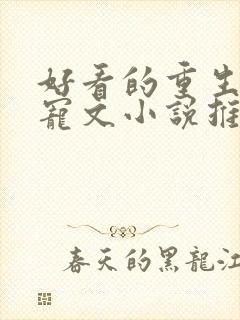 好看的重生
寵文小說推
春天的黑龍江